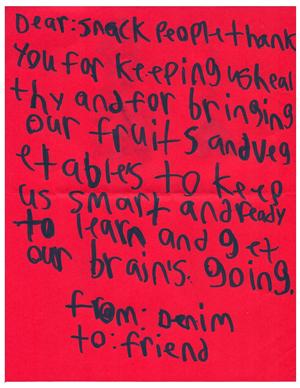 Dear: snack People thank
You for keeping us heal
thy and for bringing
our fruits and veg
etables to keep
us smart and ready
to learn and get
our brain's. going.
from: Denim
to: friend